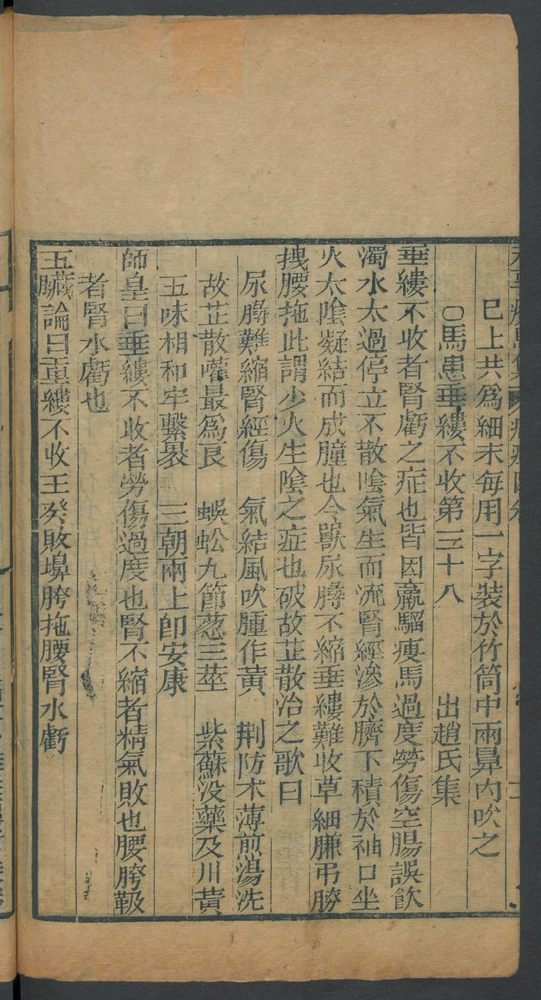 已上共爲細末每用一字裝於竹筒中兩鼻内吹之
○馬患垂縷不收第三十八　出趙氏集
垂縷不收者腎虧之症也皆因羸驅瘦馬過度勞傷空腸誤飲
濁水太過停立不散陰氣生而流腎經滲於臍下積於袖口坐
火太陰凝結而成腫也今獸尿膊不縮垂縷難收草細膁弔胯
拽腰拖此謂少火生陰之症也破故芷散治之歌曰
尿膊難縮腎經傷　氣結風吹腫作黃　荆防木薄煎湯洗
故芷散嚾最爲良　蜈蚣九節葱三莖　紫蘇没藥及川黃
五味相和牢繫裊　三朝兩上卽安康
師皇曰垂縷不收者勞傷過度也腎不縮者精氣敗也腰胯靸
者腎水虧也
五臟論曰垂縷不收壬癸敗塌胯拖腰腎水虧